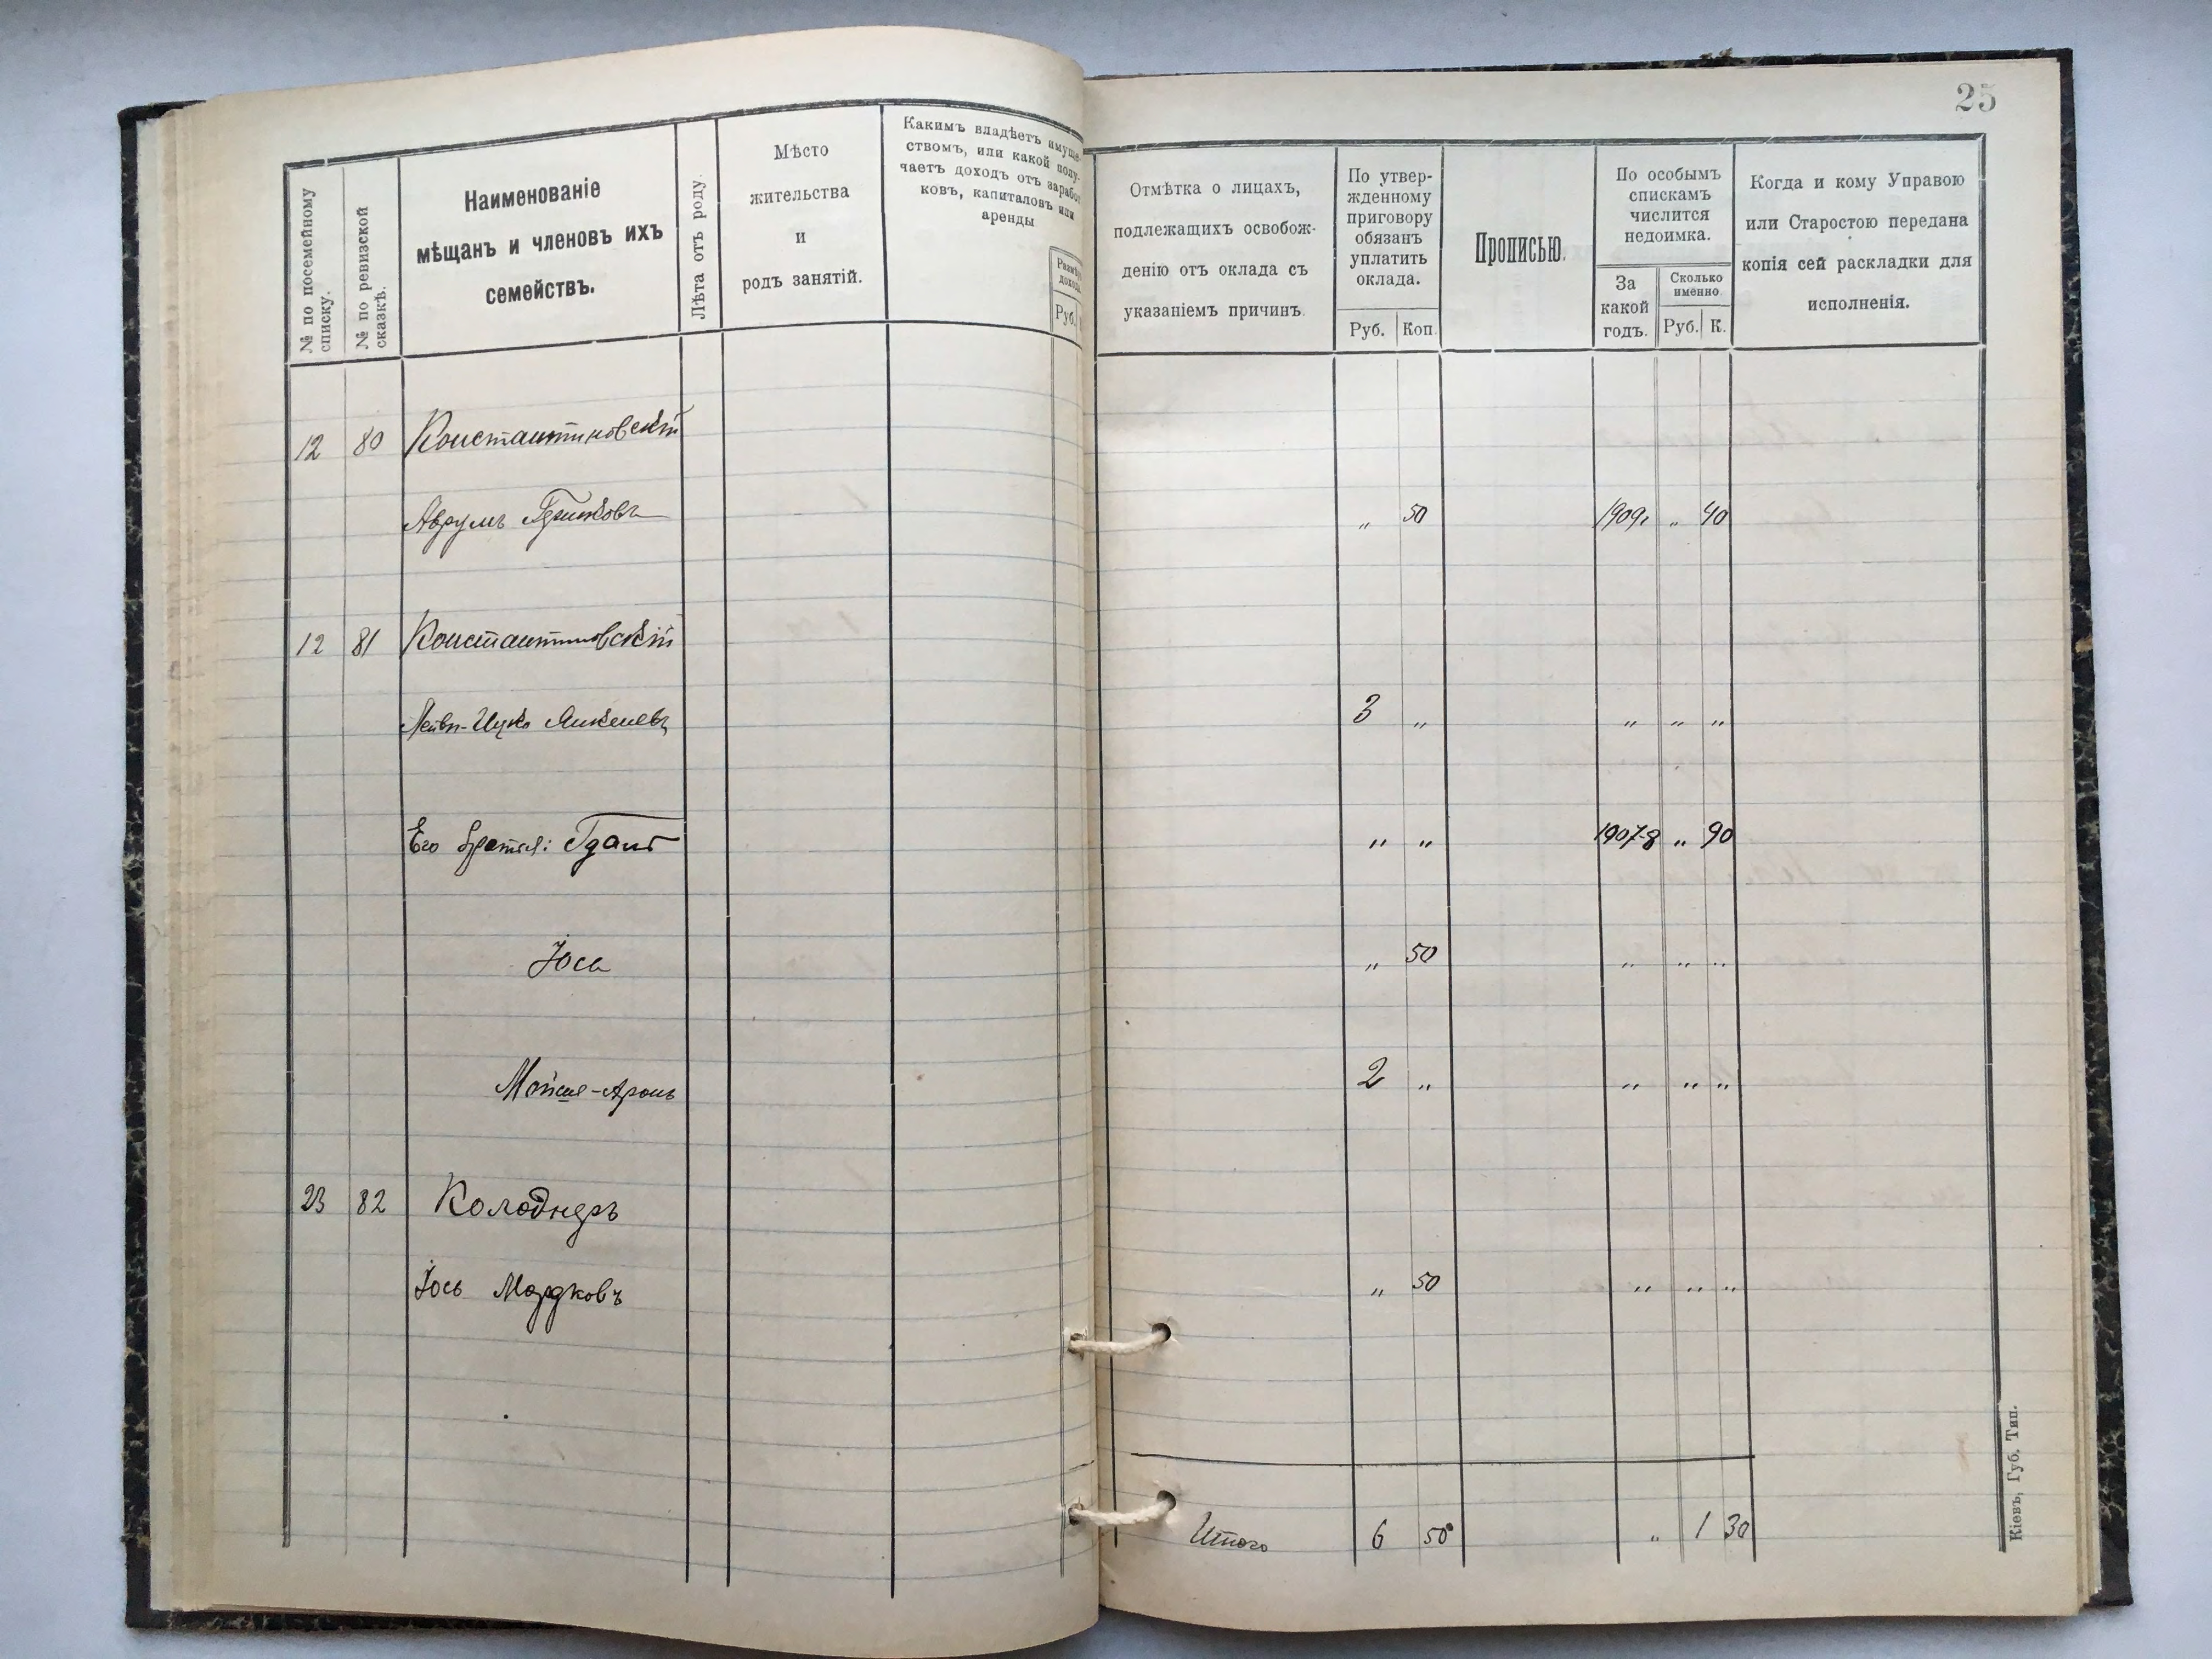 25
№ по посемейному
списку.
№ по ревизской
сказкѣ.
Наименованіе
мѣщанъ и членовъ ихъ
семействъ.
Лѣта отъ роду.
Мѣсто
жительства
и
родъ занятій.
Какимъ владѣетъ имуще-
ствомъ, или какой полу-
чаетъ доходъ отъ заработ
ковъ, капиталовъ или
аренды
Руб.
Отмѣтка о лицахъ,
подлежащихъ освобож-
денію отъ оклада съ
указаніемъ причинъ.
По утвер-
жденному
приговору
обязанъ
уплатить
оклада.
Руб. Коп.
Прописью.
По особымъ
спискамъ
числится
недоимка.
За
какой
годъ.
Сколько
именно
Руб. К.
Когда и кому Управою
или Старостою передана
копія сей раскладки для
исполненія.
12 80 Константиновскій
Аврумъ " 50 1909г " 40
12 81 Константиновскій
Лейви-Ицко Янкелевъ 3 " " " "
Его братья: " " 1907-8 " 90
Іось " 50 " " "
Мойше-Аронъ 2 " " " "
23 82 Колоднеръ
Іось Мордковъ " 50 " " "
Итого 6 50 " 1 30
Кіевъ, Губ. Тип.